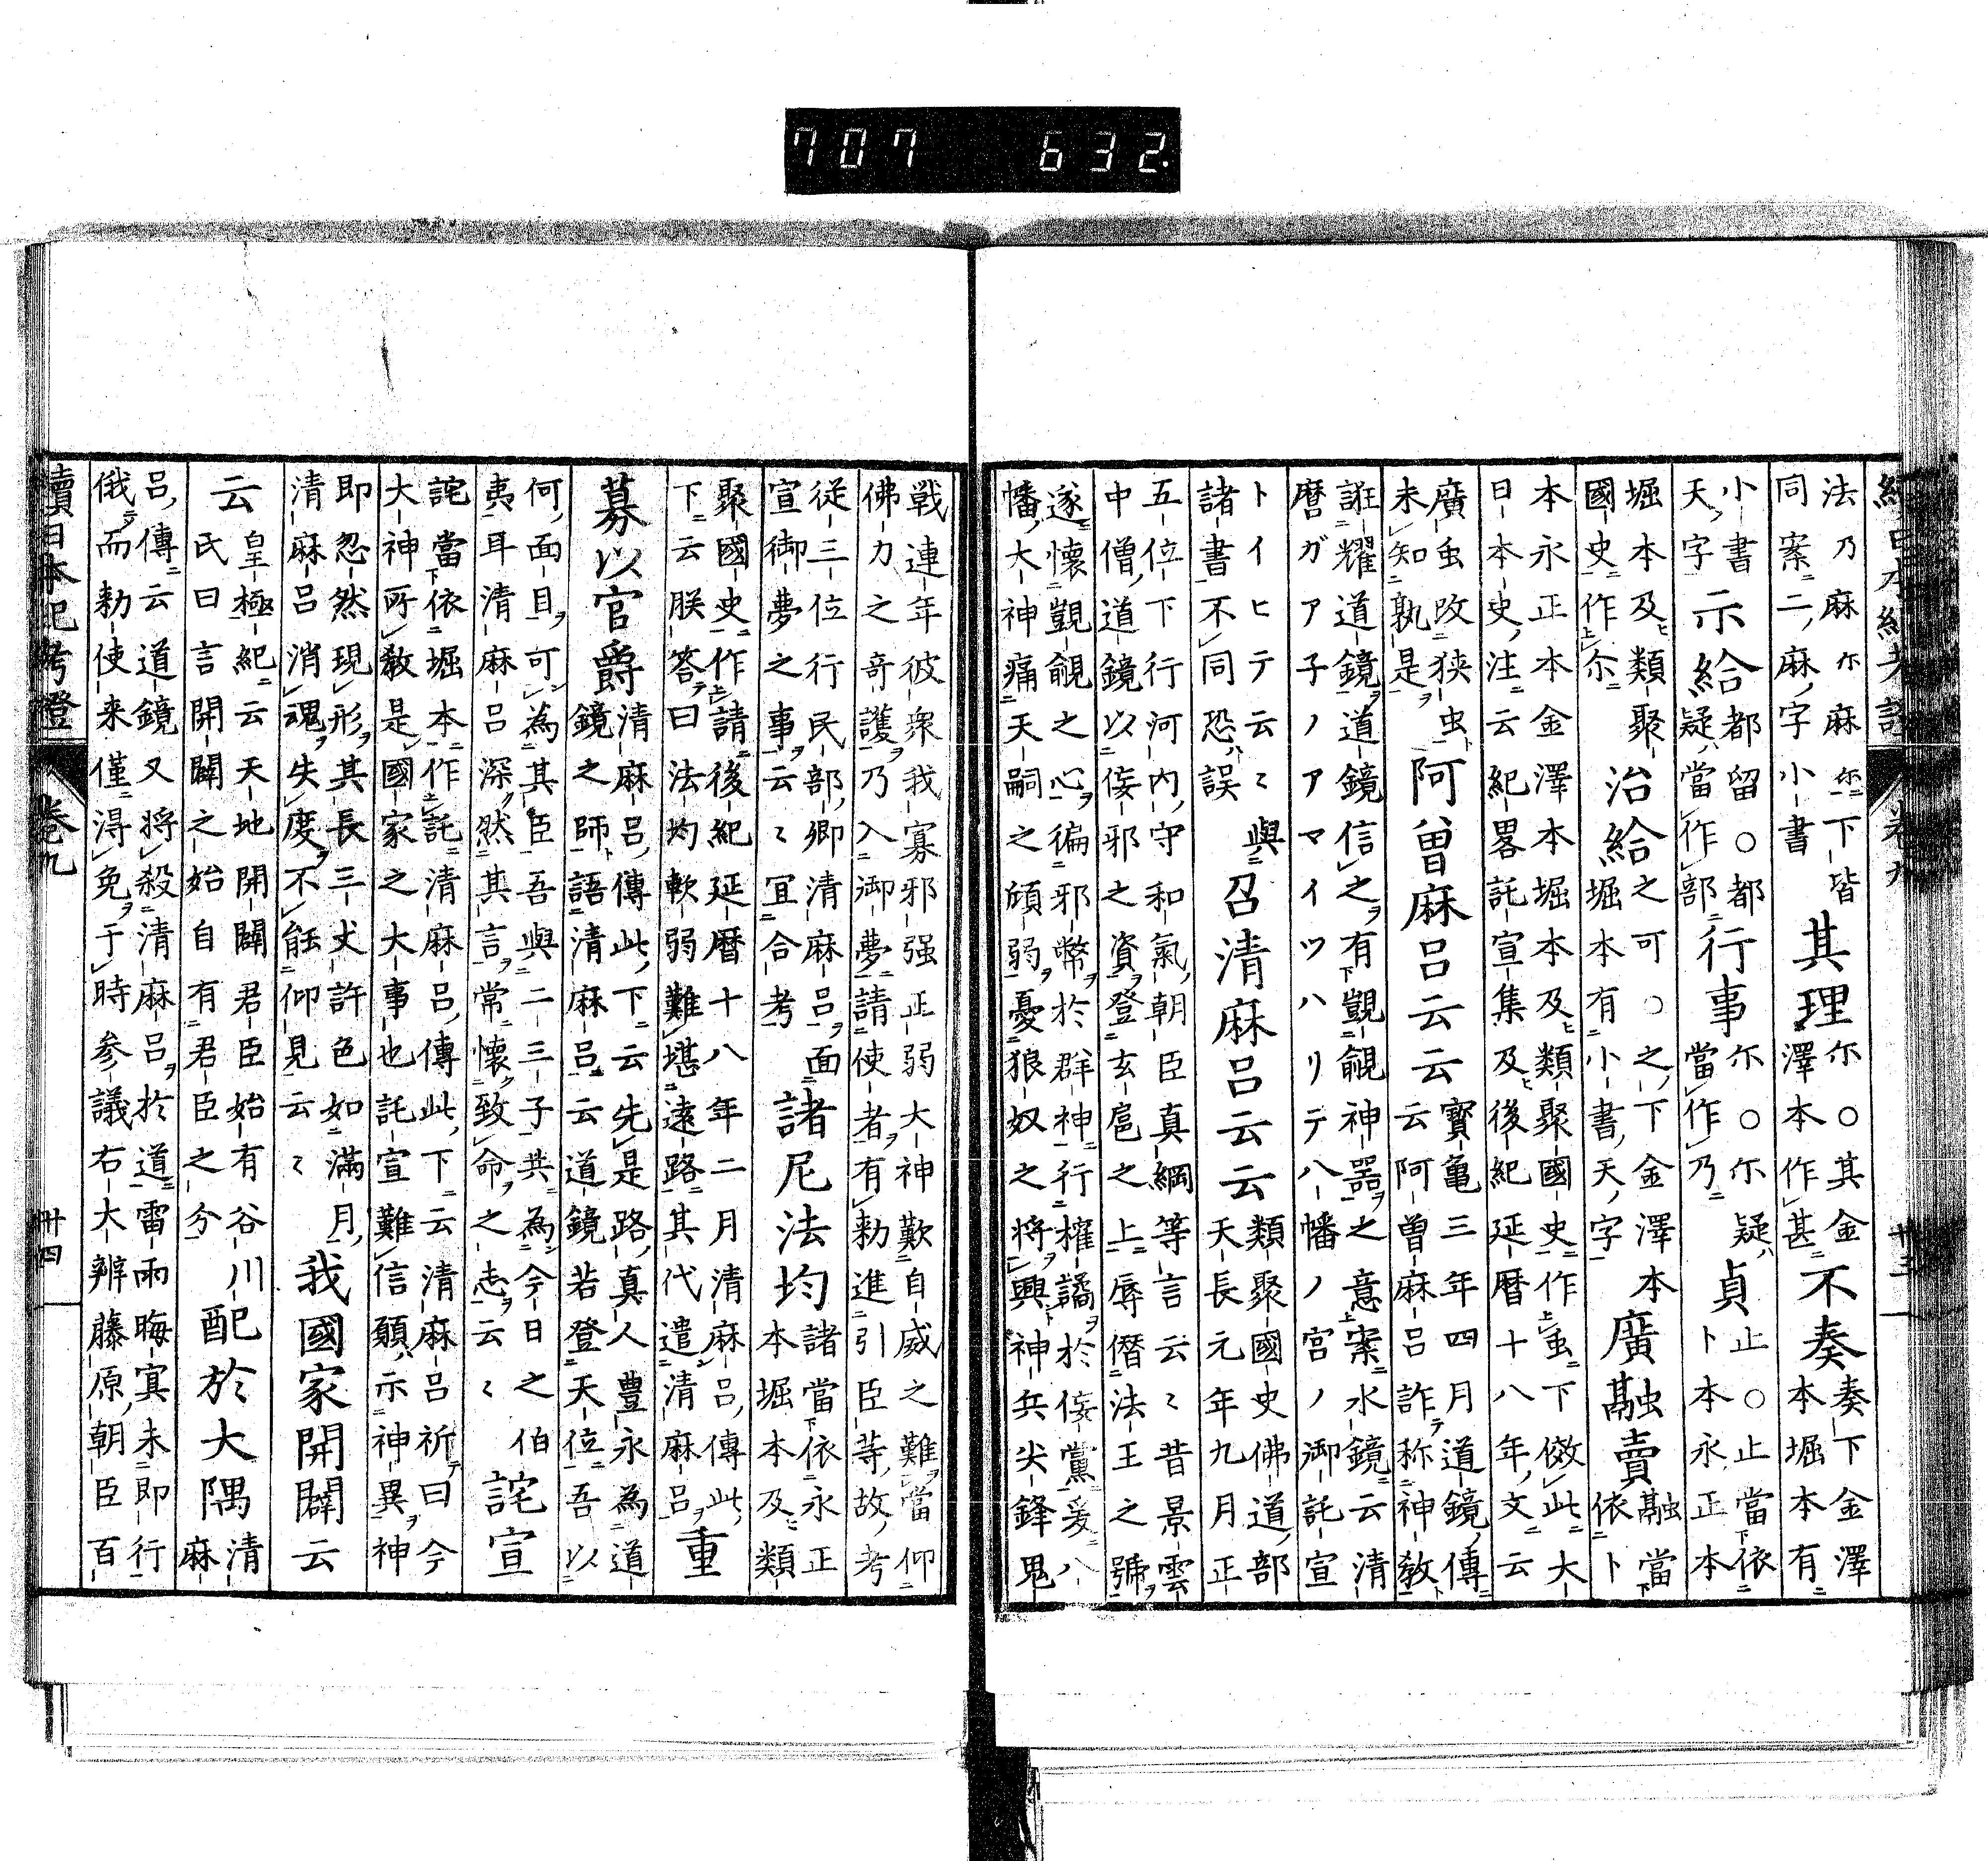 707 632.
續日本紀考證 卷九 卅三
法乃麻尓麻尓下皆
同案二麻字小書
其理
尓〇其金
澤本作甚
不奏
奏下金澤
本堀本有
小書都留〇都
天字疑當作部
示給
行事
尓〇尓疑
當作乃
貞
止〇止當依
卜本永正本
堀本及類聚
國史作尓
治給
之可〇之下金澤本
堀本有小書天字
廣融賣
融當
依卜
本永正本金澤本堀本及類聚國史作虽下倣此大
日本史注云紀畧託宣集及後紀延暦十八年文云
廣虫改狭虫
未知孰是
阿曽麻呂云云
寳龜三年四月道鏡傳
云阿曽麻呂詐称神教
誑耀道鏡道鏡信之有覬覦神器之意案水鏡云清
麿ガアネノアマイツハリテ八幡ノ宮ノ御託宣
トイヒテ云〻與
諸書不同恐誤
召清麻呂云云
類聚國史佛道部
天長元年九月正
五位下行河内守和氣朝臣真綱等言云〻昔景雲
中僧道鏡以侫邪之資登玄扈之上辱僭法王之號
遂懐覬覦之心徧邪幣於群神行權譎於侫黨爰八
幡大神痛天嗣之傾弱憂狼奴之将興神兵尖鋒鬼
戦連年彼衆我寡邪强正弱大神歎自威之難當仰
佛力之奇護乃入御夢請使者有勅進引臣等故考
從三位行民部卿清麻呂面
宣御夢之事云〻冝合考
諸尼法均
諸當依永正
本堀本及類
聚國史作請後紀延暦十八年二月清麻呂傳此
下云朕答曰法均軟弱難堪遠路其代遣清麻呂
重
募以官爵
清麻呂傳此下云先是路真人豊永為道
鏡之師語清麻呂云道鏡若登天位吾以
何面目可為其臣吾與二三子共為今日之伯
夷耳清麻呂深然其言常懐致命之志云〻
詫宣
詫當依堀本作託清麻呂傳此下云清麻呂祈曰今
大神所教是國家之大事也託宣難信願示神異神
即忽然現形其長三丈許色如滿月
清麻呂消魂失度不能仰見云〻
我國家開闢云
云
皇極紀云天地開闢君臣始有谷川
氏曰言開闢之始自有君臣之分
配於大隅
清
麻
呂傳云道鏡又将殺清麻呂於道雷雨晦冥未即行
俄而勅使来僅得免于時参議右大辨藤原朝臣百
續日本紀考證 卷九 卅四